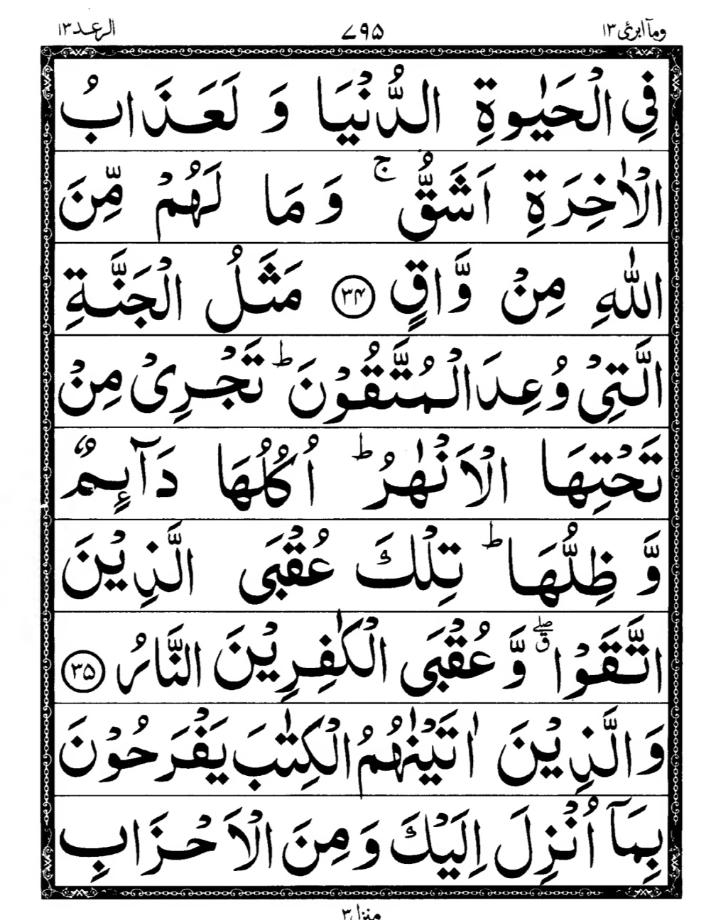 ومآ ابرئ ١٣ ٧٩٥ الرعد ١٣
فِي الْحَيٰوةِ الدُّنْيَا وَ لَعَذَابُ
الْاٰخِرَةِ اَشَقُّ ۚ وَ مَا لَهُمْ مِّنَ
اللّٰهِ مِنْ وَّاقٍ ﴿۳۴﴾ مَثَلُ الْجَنَّةِ
الَّتِيْ وُعِدَ الْمُتَّقُوْنَ ؕ تَجْرِيْ مِنْ
تَحْتِهَا الْاَنْهٰرُ ؕ اُكُلُهَا دَآئِمٌ
وَّ ظِلُّهَا ؕ تِلْكَ عُقْبَى الَّذِيْنَ
اتَّقَوْا ۖۗ وَّ عُقْبَى الْكٰفِرِيْنَ النَّارُ ﴿۳۵﴾
وَ الَّذِيْنَ اٰتَيْنٰهُمُ الْكِتٰبَ يَفْرَحُوْنَ
بِمَاۤ اُنْزِلَ اِلَيْكَ وَ مِنَ الْاَحْزَابِ
منزل ٣